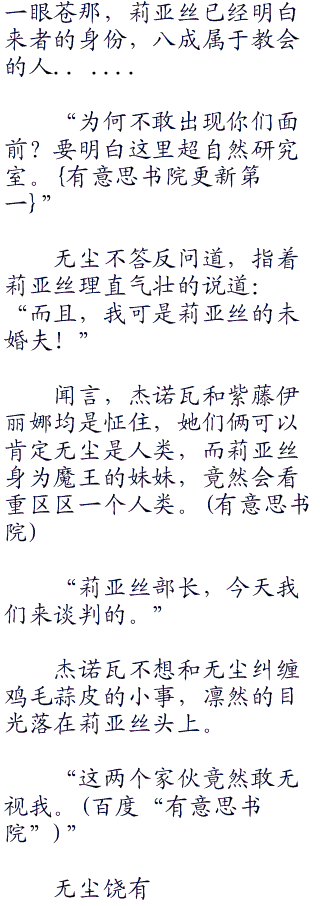 一眼苍那，莉亚丝已经明白
来者的身份，八成属于教会
的人．．．．．．
“为何不敢出现你们面
前？要明白这里超自然研究
室。{有意思书院更新第
一}”
无尘不答反问道，指着
莉亚丝理直气壮的说道：
“而且，我可是莉亚丝的未
婚夫！”
闻言，杰诺瓦和紫藤伊
丽娜均是怔住，她们俩可以
肯定无尘是人类，而莉亚丝
身为魔王的妹妹，竟然会看
重区区一个人类。(有意思书
院)
“莉亚丝部长，今天我
们来谈判的。”
杰诺瓦不想和无尘纠缠
鸡毛蒜皮的小事，凛然的目
光落在莉亚丝头上。
“这两个家伙竟然敢无
视我。(百度“有意思书
院”)”
无尘饶有